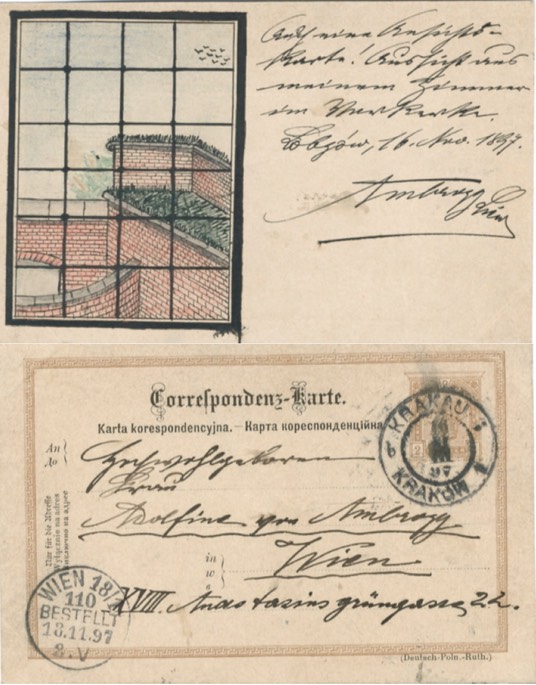 Auch eine Ansichts-
karte! Aussicht aus
meinem Zimmer
im Werk
16. Nov. 1897.
Ambrozy
Correspondenz-Karte.
Karta korespondencyjna. — Карта кореспонденційна
An
До
Hochwohlgeboren
Frau
Adolfine von Ambrozy
in
w
в
Wien
XVIII. Anastasius grüngasse 22.
Nur für die Adresse
Wyłącznie na adres
KRAKAU 1
KRAKÓW 1
97
WIEN 18/1
110
BESTELLT
18.11.97
8.V
(Deutsch-Poln.-Ruth.)